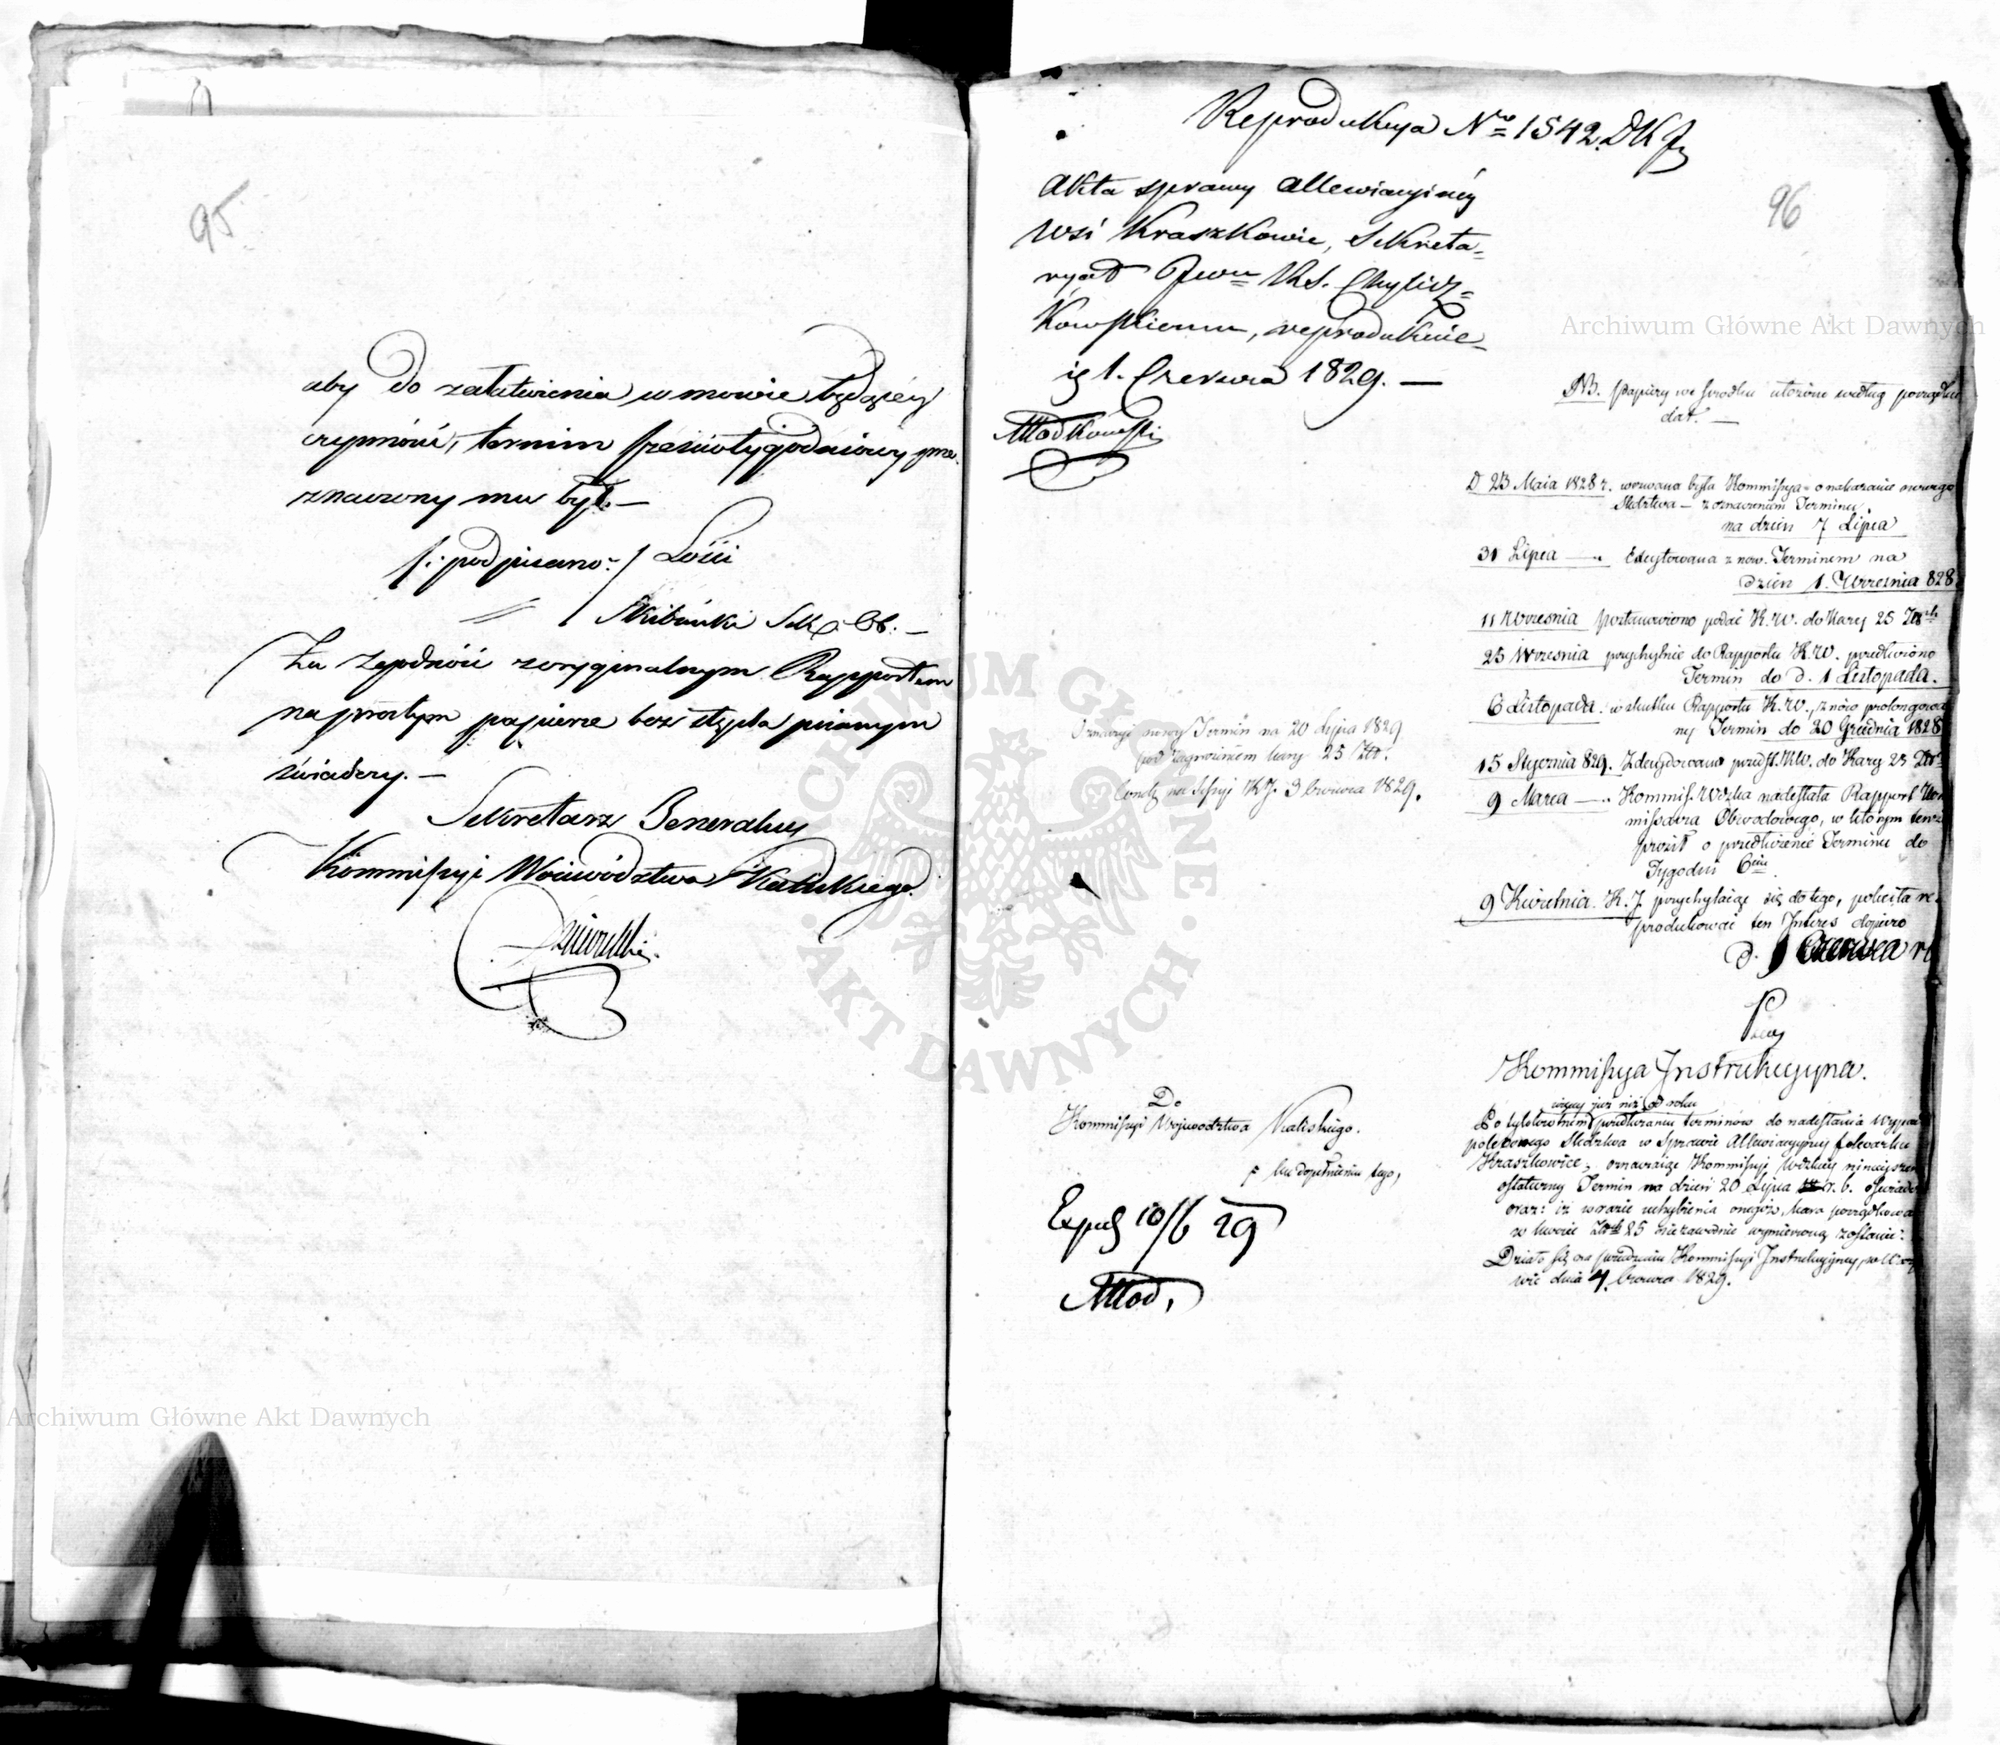 95
aby do załatwienia w mowie będącéy
czynności, termin sześciotygodniowy prze-
znaczony mu był.—
/: podpisano :/ Lossi
Skibiński Sek. Ob.—
Za zgodność z oryginalnym Rapportem
na prostym papierze bez stępla pisanym
świadczy.—
Sekretarz Generalny
Kommissyi Woiewództwa Kaliskiego.
Reprodukcya Nro 1542. DKJ
96
Akta sprawy allewiacyinéy
wsi Kraszkowic, Sekreta-
ryat JWu KS. Chylicz-
kowskiemu, reprodukuie-
ię 1. Czerwca 1829.—
Młodkowski
NB. papiery we środku ułożone według porządku
dat.—
D 23 Maia 1828 r. wezwana była Kommissya o nakazanie nowego
Śledztwa — z oznaczeniem Terminu
na dzień 7 Lipca
31 Lipca — Excytowana z now. Terminem na
dzień 1. Września 828
11 Września postanowiono podać K. W. do kary 25 Złł
25 Września przychylnie do Rapportu K. W. przedłużono
Termin do d. 1 Listopada.
6 Listopada. w skutku Rapportu K. W. znów prolongowa
ny Termin do 20 Grudnia 1828
15 Stycznia 829. Zdecydowano przedst. KW. do Kary 25 Złł
9 Marca — Kommiss. Wdzka nadesłała Rapport Kom
missarza Obwodowego, w którym tenże
prosił o przedłużenie Terminu do
Tygodni 6ciu
9 Kwietnia. K. J. przychylaiąc się do tego, poleciła re-
produkować ten Interes dopiero
d. 1 Czerwca r b
Oznaczyć nowy Termin na 20 Lipca 1829
pod zagrożeniem kary 25 Złł.
Concl. na Sessyi KJ. 3 Czerwca 1829.
Kommissya Instrukcyyna.
więcey już niż od roku
Po tylokrotnem przedłużaniu terminów do nadesłania wypro
Śledztwa w Sprawie Allewiacyyney folwarku
Kraszkowice, oznaczaiąc Kommissyi Wdzkiey ninieyszem
ostateczny Termin na dzień 20 Lipca r. b. oświadcza
oraz: iż w razie uchybienia onegoż, kara porządkowa
w kwocie Złł 25 niezawodnie wymierzoną zostanie.
Działo się na posiedzeniu Kommissyi Instrukcyyney, w Warsza
wie dnia 4 Czerwca 1829.
Do
Kommissyi Woiewództwa Kaliskiego.
ku dopełnieniu tego,
Exped 10/6 29
Młod.
Archiwum Główne Akt Dawnych
Archiwum Główne Akt Dawnych
ARCHIWUM GŁÓWNE AKT DAWNYCH